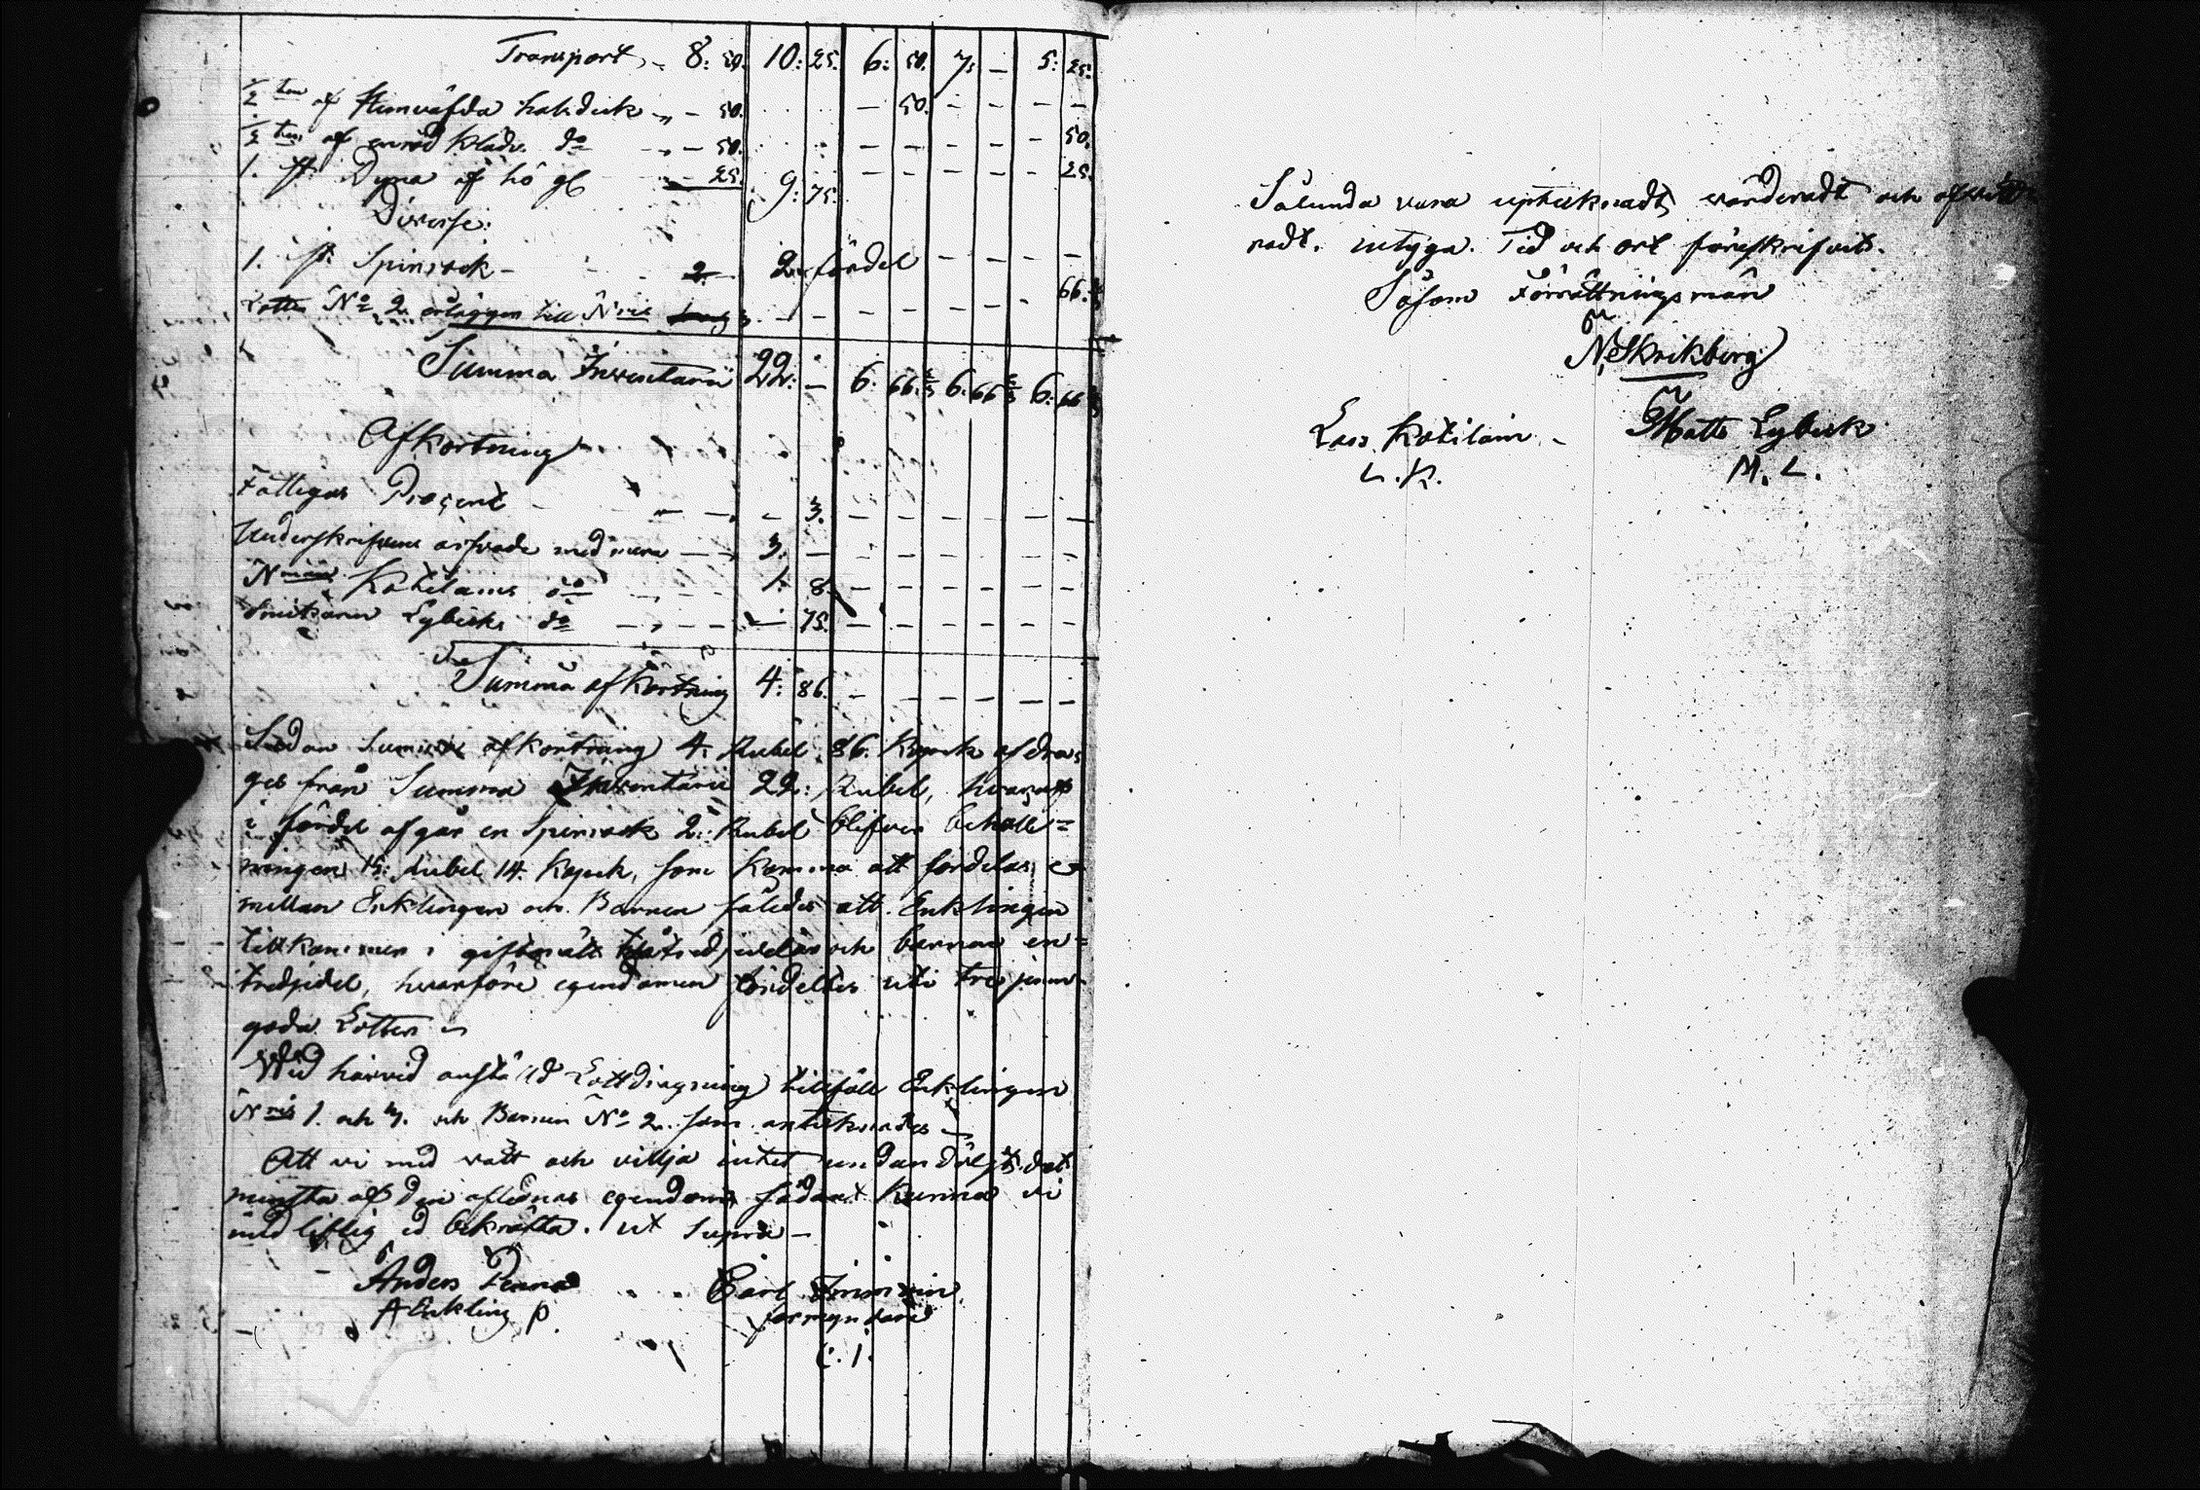 Transport, - 8: 50. 10: 25. 6: 50. 7: - 5: 25.
1/2 ten af hals duk - 50. - 50. - - - -
1/2 ten af do - - 50. - - - - - 50.
1. st. Dyna af hö gl - 25. 9: 75. - - - - - 25.
Diverse:
1. st. Spinrock - 2. - 2. - fördel - - - -
Lotten No 2. till Nris - - - - - - 66. 2/3
Summa Inventarii 22: - 6: 66. 2/3 6. 66 2/3 6: 66 2/3
Afkortning
Fattigas Procent - - - - 3. - - - - - -
Underskrifvens arfvode med mera - - 3. - - - - - - -
Nmän Kotilains do - - - 1. 8. - - - - - -
Lybecks do - - - - 75. - - - - - -
Summa afkortning 4: 86. - - - - - -
Sedan Summa afkortning 4. Rubel 86. Kopek afdra-
ges från Summa Inventarii 22: Rubel, hvaraf
i fördel afgår en Spinrock 2: Rubel blifver behåll=
ningen 15: Rubel 14. Kopek, som komma att fördelas e
mellan Enklingen och Barnen således att Enklingen
tillkommer i giftorätt två tredjedelar och barnen en=
tredjedel, hvarföre egendomen fördeltes uti tre jemn-
goda Lotter
Wid härvid anstäld Lottdragning tillföll Enklingen
Nris 1. och 3. och Barnen No 2. som antecknades
Att vi med vått och vilja intet undandölgt det
minsta af den aflednas egendom sådant kunna vi
med liflig ed bekräfta. ut Supra -
Anders
A Enkling P
Carl
förmyndare
C. I.
Sålunda vara uptecknadt, värderadt och
radt. intyga. Tid och ort föreskrifvit.
Såsom Förrättningsmän
N. Skrikberg
Lars Kotilain - Matts Lybeck
L. K. M. L.